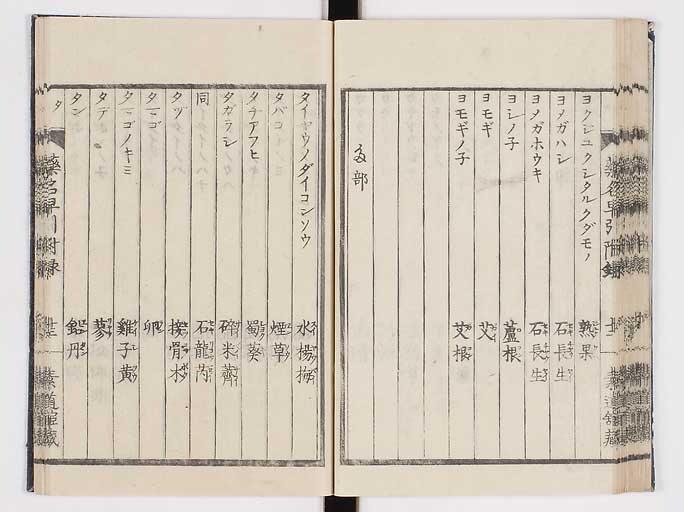 ヨクジユクシタルクダモノ 熟果
ヨメガハシ 石長生
ヨメガホウキ 石長生
ヨシノ子 蘆根
ヨモギ 艾
ヨモギノ子 艾根
タ部
タイヤウノダイコンソウ 水楊梅
タバコ 煙草
タチアフヒ 蜀葵
タガラシ 碎米薺
同 石龍芮
タヅ 接骨木
タマゴ 卵
タマゴノキミ 雞子黄
タデ 蓼
タン 鉛丹
タ 藥名早引附録